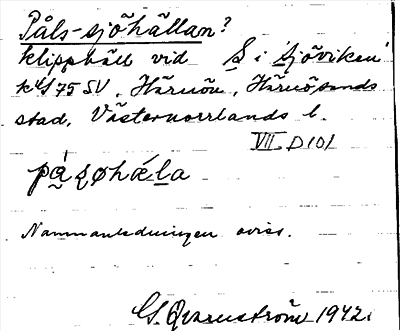 Påls-sjöhällan?
klipphäll vid S i 'Sjöviken'
kf/75 SV, Härnön, Härnösands
stad, Västernorrlands l.
VII D101
Namnanledningen oviss.
G. Qvarnström 1942.